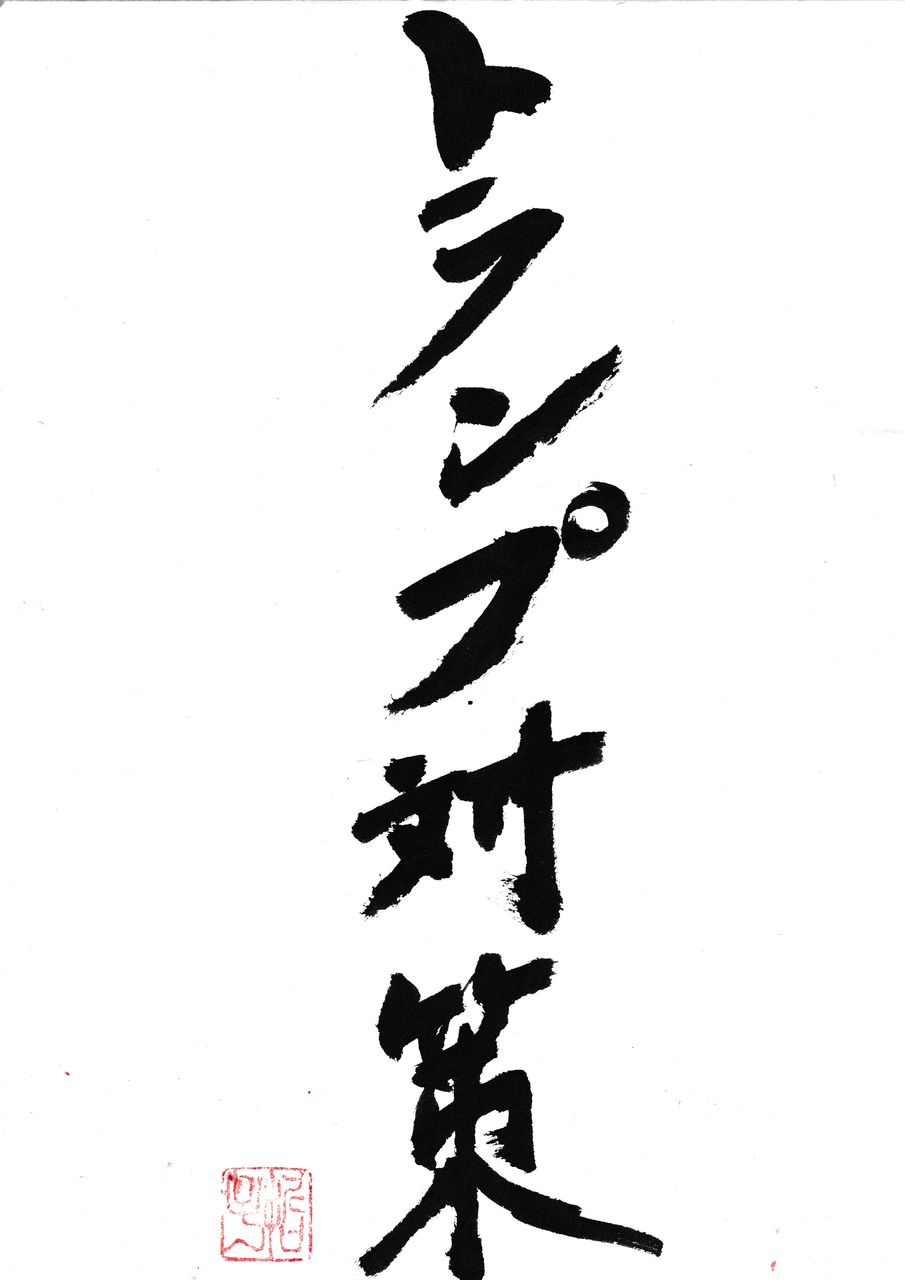 トランプ対策